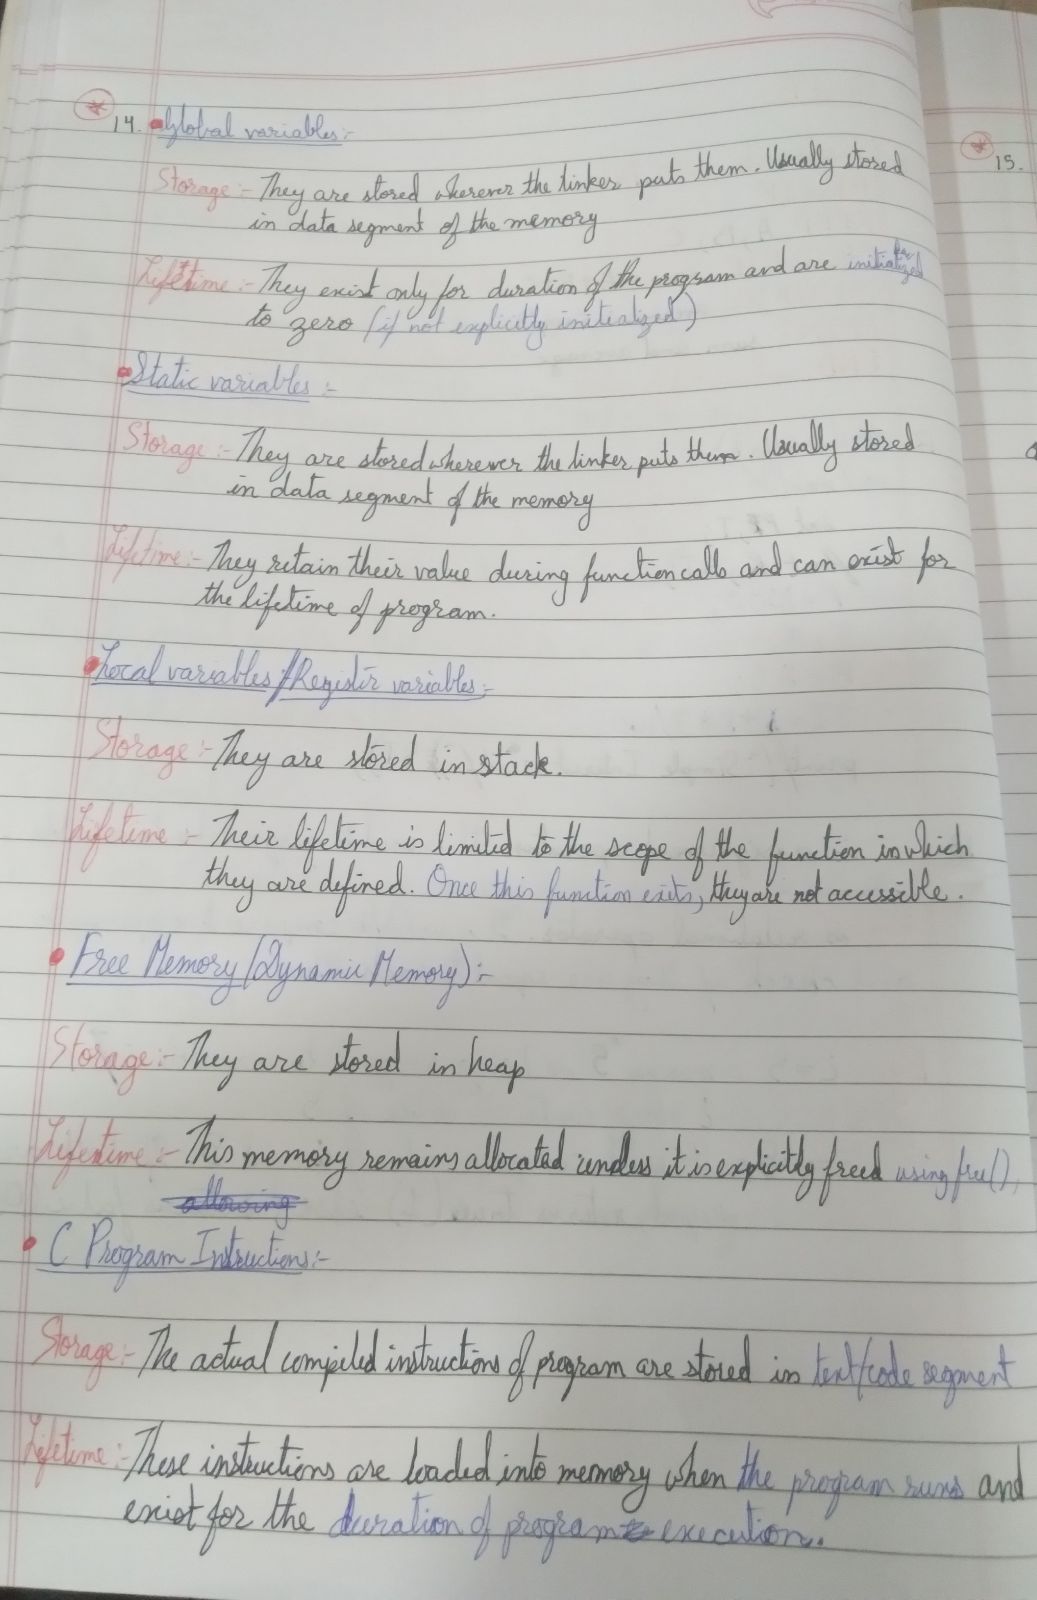 14. Global variables:-
Storage:- They are stored wherever the linker puts them. Usually stored
in data segment of the memory
Lifetime:- They exist only for duration of the program and are initialized
to zero (if not explicitly initialized)
Static variables:-
Storage:- They are stored wherever the linker puts them. Usually stored
in data segment of the memory
Lifetime:- They retain their value during function calls and can exist for
the lifetime of program.
Local variables/Register variables:-
Storage:- They are stored in stack.
Lifetime:- Their lifetime is limited to the scope of the function in which
they are defined. Once this function exits, they are not accessible.
Free Memory (Dynamic Memory):-
Storage:- They are stored in heap
Lifetime:- This memory remains allocated unless it is explicitly freed using free().
allowing
C Program Instructions:-
Storage:- The actual compiled instructions of program are stored in text/code segment
Lifetime:- These instructions are loaded into memory when the program runs and
exist for the duration of program execution.
15.